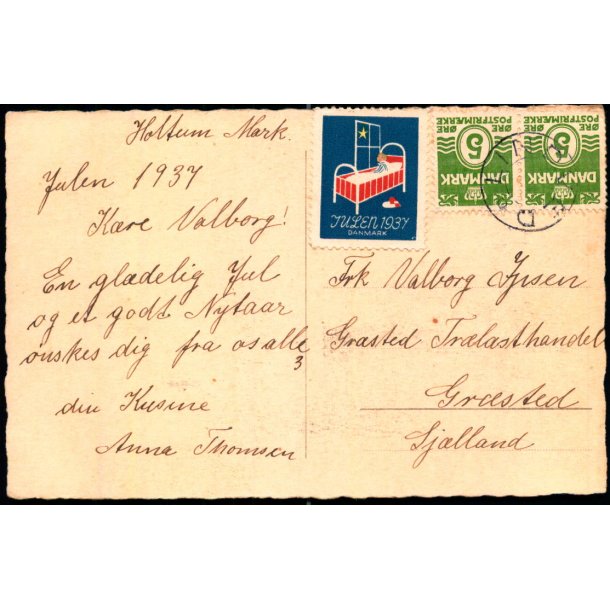 Holtum Mark.
Julen 1937
Kære Valborg!
En glædelig Jul
og et godt Nytaar
ønskes dig fra os alle
3
din Kusine
Anna Thomsen
JULEN 1937
DANMARK
5
ØRE
POSTFRIMÆRKE
DANMARK
5
ØRE
POSTFRIMÆRKE
DANMARK
Frk Valborg Ipsen
Græsted Trælasthandel
Græsted
Sjælland